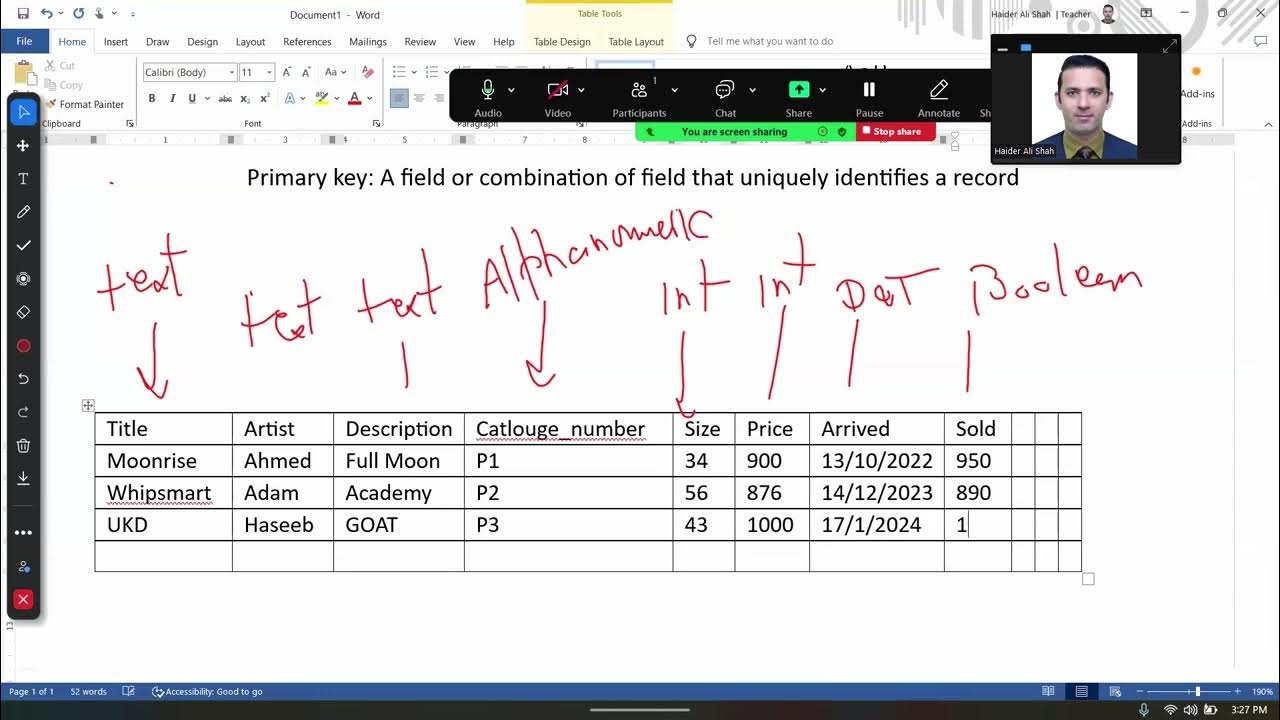 Document1 - Word
Table Tools
Haider Ali Shah | Teacher
File Home Insert Draw Design Layout References Mailings Review View Help Table Design Table Layout Tell me what you want to do
Cut
Copy
Format Painter
Clipboard
Calibri (Body) 11
Font
Paragraph
Audio Video Participants 1 Chat Share Pause Annotate
You are screen sharing Stop share
Add-ins
Add-ins
Haider Ali Shah
Primary key: A field or combination of field that uniquely identifies a record
text text text Alphanumeric Int Int DaT Boolean
Title Artist Description Catlouge_number Size Price Arrived Sold
Moonrise Ahmed Full Moon P1 34 900 13/10/2022 950
Whipsmart Adam Academy P2 56 876 14/12/2023 890
UKD Haseeb GOAT P3 43 1000 17/1/2024 1
Page 1 of 1 52 words Accessibility: Good to go 190%
3:27 PM